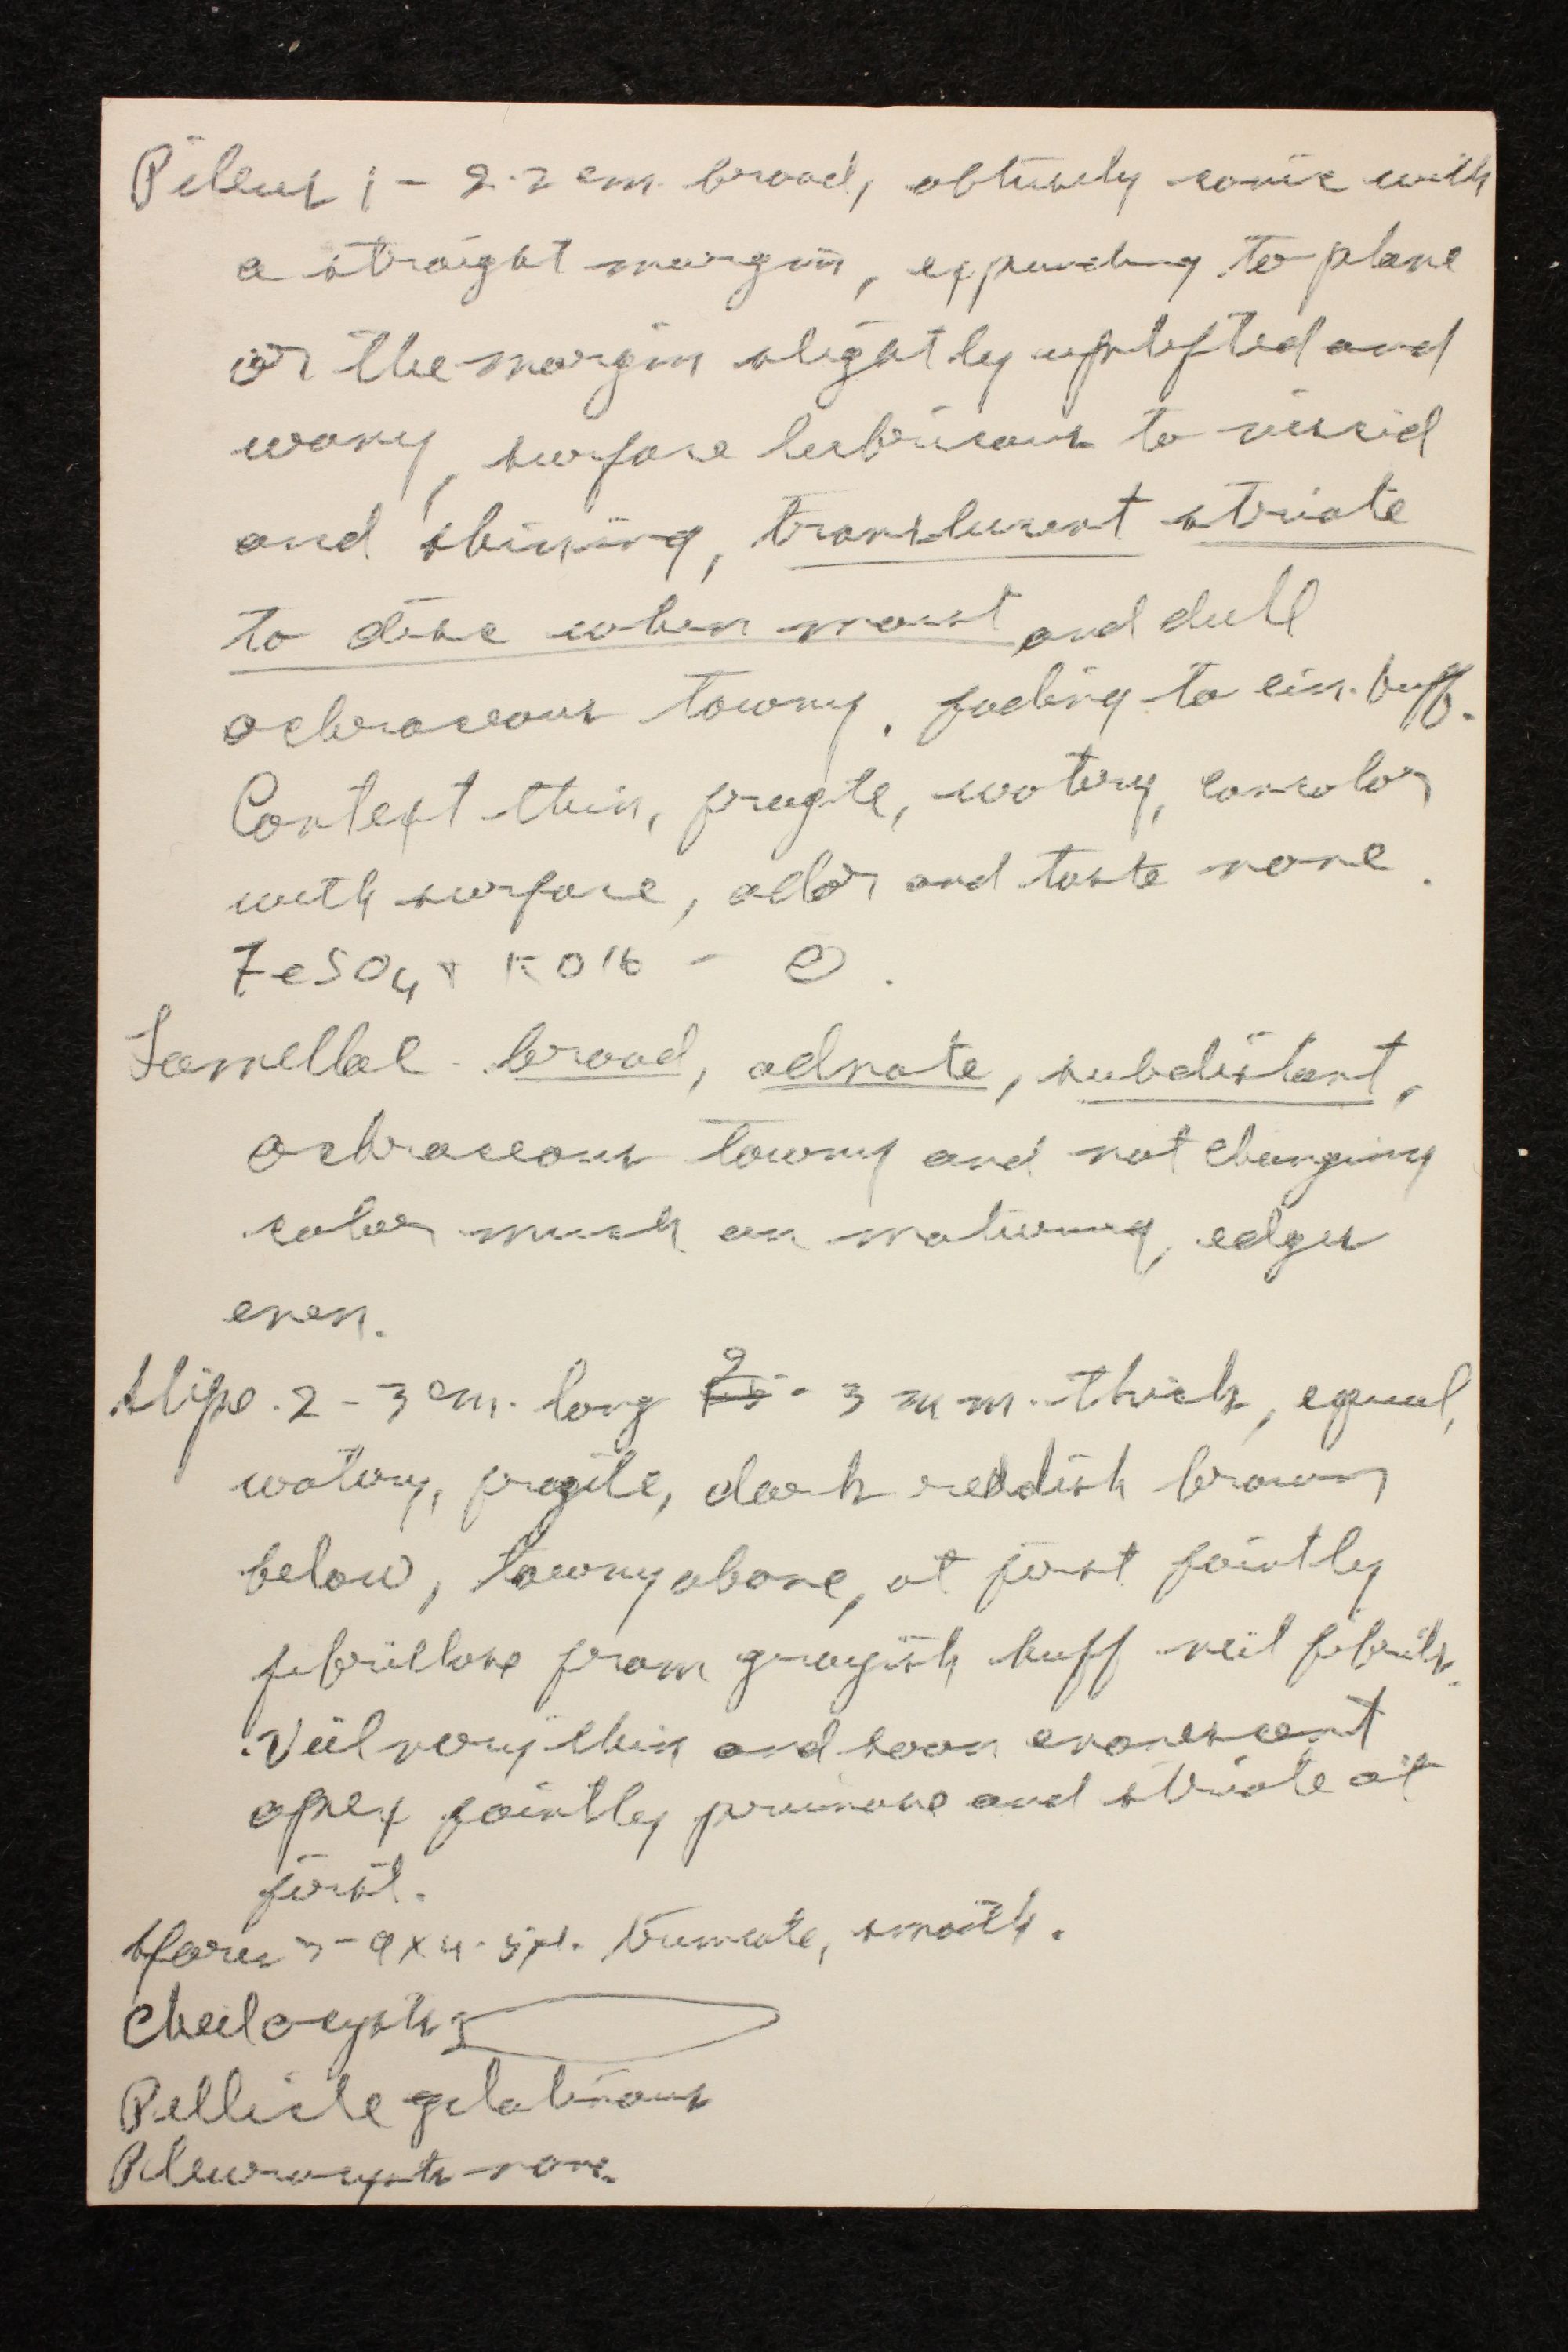 Pileus 1 - 2.2 cm. broad, obtusely conic with
a straight margin, expanding to plane
or the margin slightly uplifted and
wavy, surface lubricous to viscid
and shining, translucent striate
to disc when moist and dull
ochraceous tawny. fading to cin. buff.
Context thin, fragile, watery, concolor
with surface, odor and taste none.
FeSO4 + KOH - O.
Lamellae - broad, adnate, subdistant,
ochraceous tawny and not changing
color much on maturing, edges
even.
Stipe. 2 - 3 cm. long 2 - 3 mm. thick, equal,
watery, fragile, dark reddish brown
below, tawny above, at first faintly
fibrillose from grayish buff veil fibrils.
Veil very thin and soon evanescent
apex faintly pruinose and striate at
first.
Spores 7-9 x 4-5µ. truncate, smooth.
Cheilocysts
Pellicle gelatinous
Pleurocysts none.